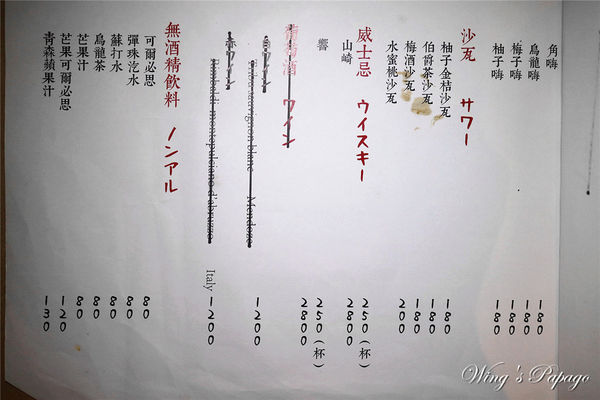 角嗨 180
烏龍嗨 180
梅子嗨 180
柚子嗨 180
沙瓦 サワー
柚子金桔沙瓦 180
伯爵茶沙瓦 180
梅酒沙瓦 180
水蜜桃沙瓦 200
威士忌 ウイスキー
山崎 250(杯) 2800
響 250(杯) 2800
葡萄酒 ワイン
Mendoza 1200
montepulciano d'abruzzo Italy 1200
無酒精飲料 ノンアル
可爾必思 80
彈珠汽水 80
蘇打水 80
烏龍茶 80
芒果汁 80
芒果可爾必思 120
青森蘋果汁 130
Wing's Papago